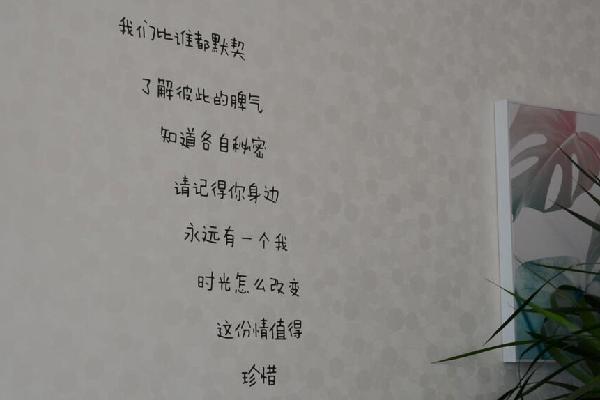 我们比谁都默契
了解彼此的脾气
知道各自秘密
请记得你身边
永远有一个我
时光怎么改变
这份情值得
珍惜